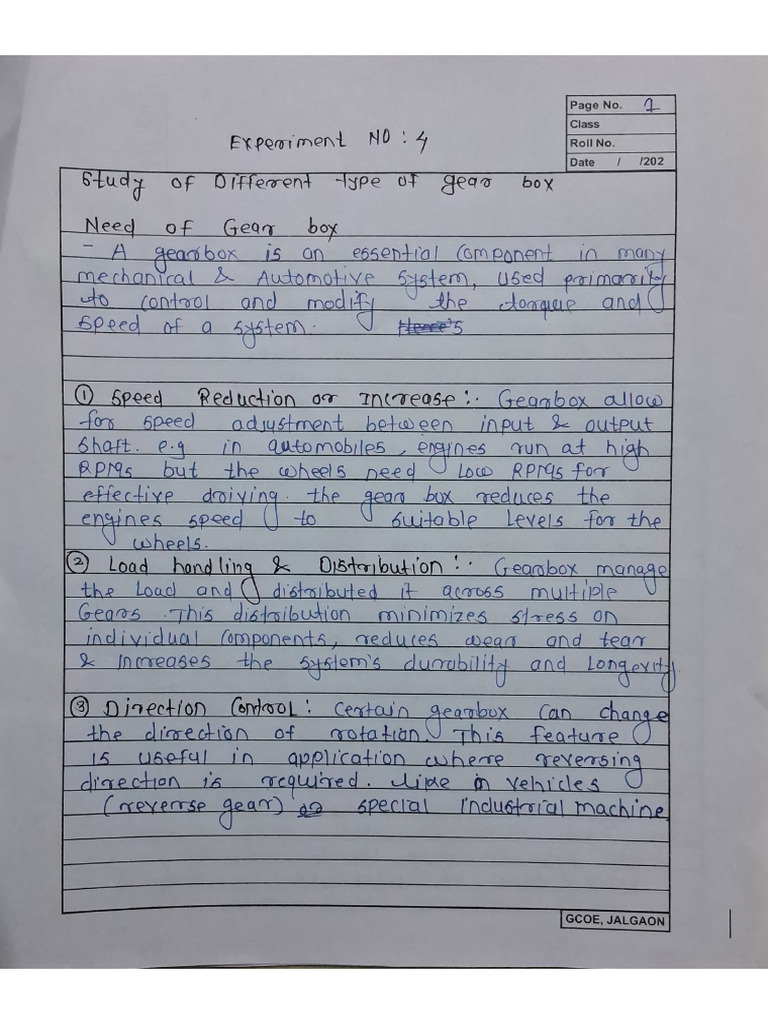 Page No. 1
Class
Roll No.
Date / /202
Experiment NO : 4
Study of Different type of gear box
Need of Gear box
- A gearbox is an essential component in many
mechanical & Automotive system, used primarity
to control and modify the torque and
speed of a system.
① Speed Reduction or Increase:- Gearbox allow
for speed adjystment between input & output
Shaft. e.g in automobiles, engines run at high
RPMs but the wheels need low RPMs for
effective driving. the gear box reduces the
engines speed to suitable levels for the
wheels.
② Load handling & Distribution:- Gearbox manage
the load and distributed it across multiple
Gears. This distribution minimizes stress on
individual components, reduces wear and tear
& Increases the system's durability and Longevity
③ Direction Control: Certain gearbox can change
the direction of rotation. This feature
is useful in application where reversing
direction is required. like in vehicles
(reverse gear) or special industrial machine
GCOE, JALGAON